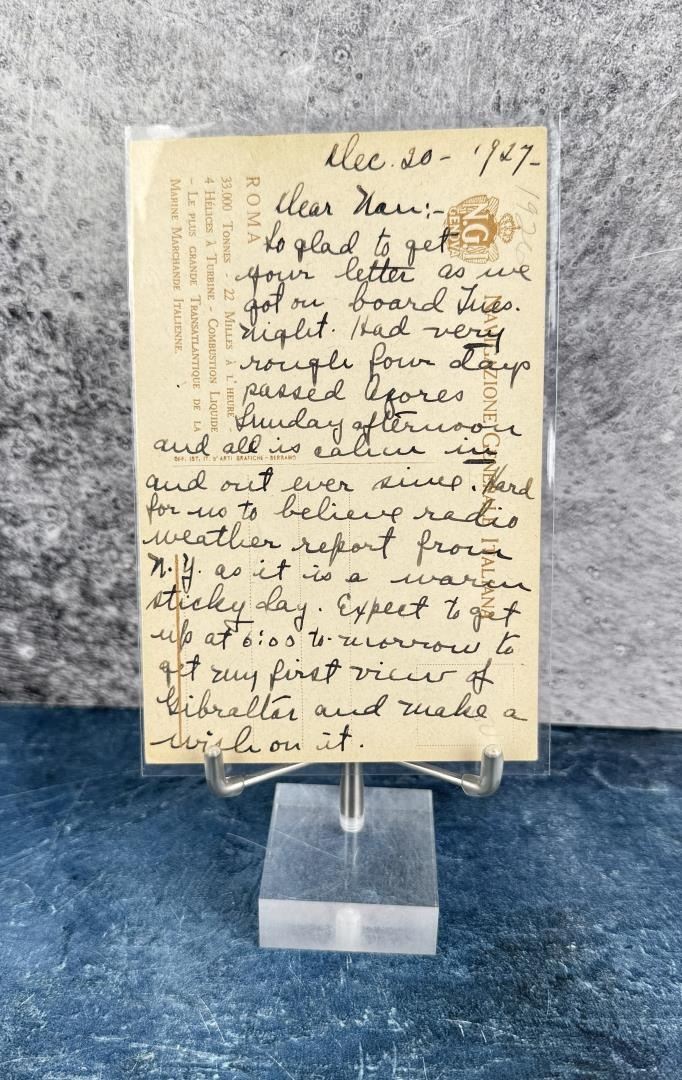 Dec. 20 - 1927 -
Dear Nan:-
So glad to get
your letter as we
got on board Tues.
night. Had very
rough four days
passed Azores
Sunday afternoon
and all is calm in
and out ever since. Hard
for us to believe radio
weather report from
N.Y. as it is a warm
sticky day. Expect to get
up at 6:00 to-morrow to
get my first view of
Gibraltar and make a
wish on it.
ROMA
33.000 TONNES - 22 MILLES À L'HEURE -
4 HÉLICES À TURBINE - COMBUSTION LIQUIDE
- LE PLUS GRANDE TRANSATLANTIQUE DE LA
MARINE MARCHANDE ITALIENNE.
N.G.I.
GENOVA
NAVIGAZIONE GENERALE ITALIANA
OFF. IST. IT. D'ARTI GRAFICHE - BERGAMO